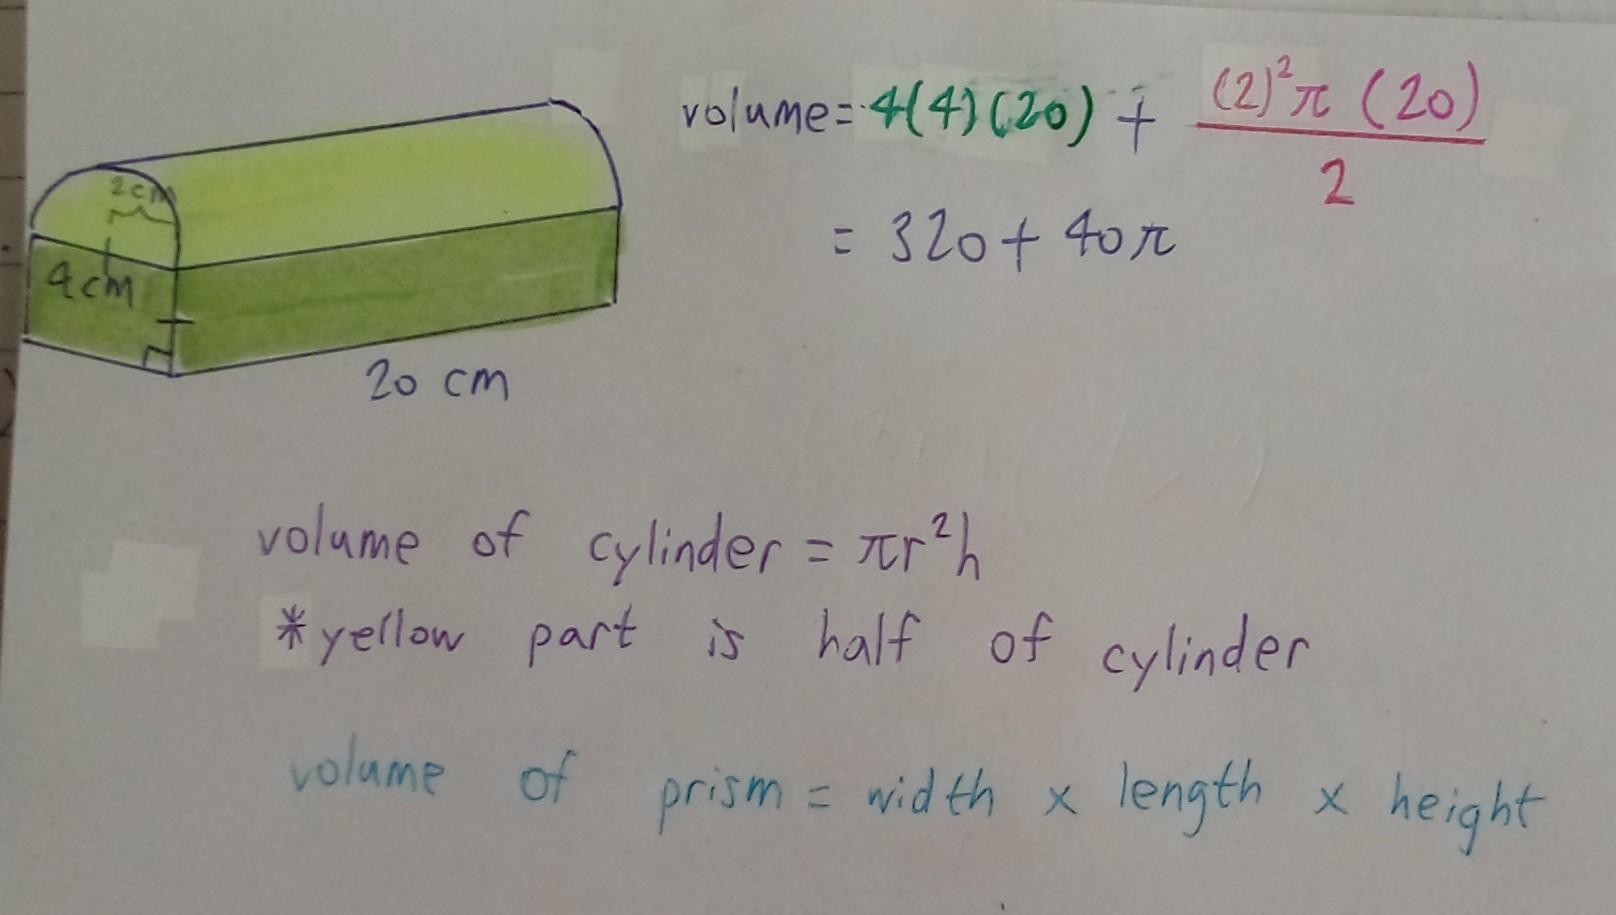 volume = 4(4)(20) + (2)²π (20)
2
= 320 + 40π
2cm
4cm
20 cm
volume of cylinder = πr²h
*yellow part is half of cylinder
volume of prism = width x length x height